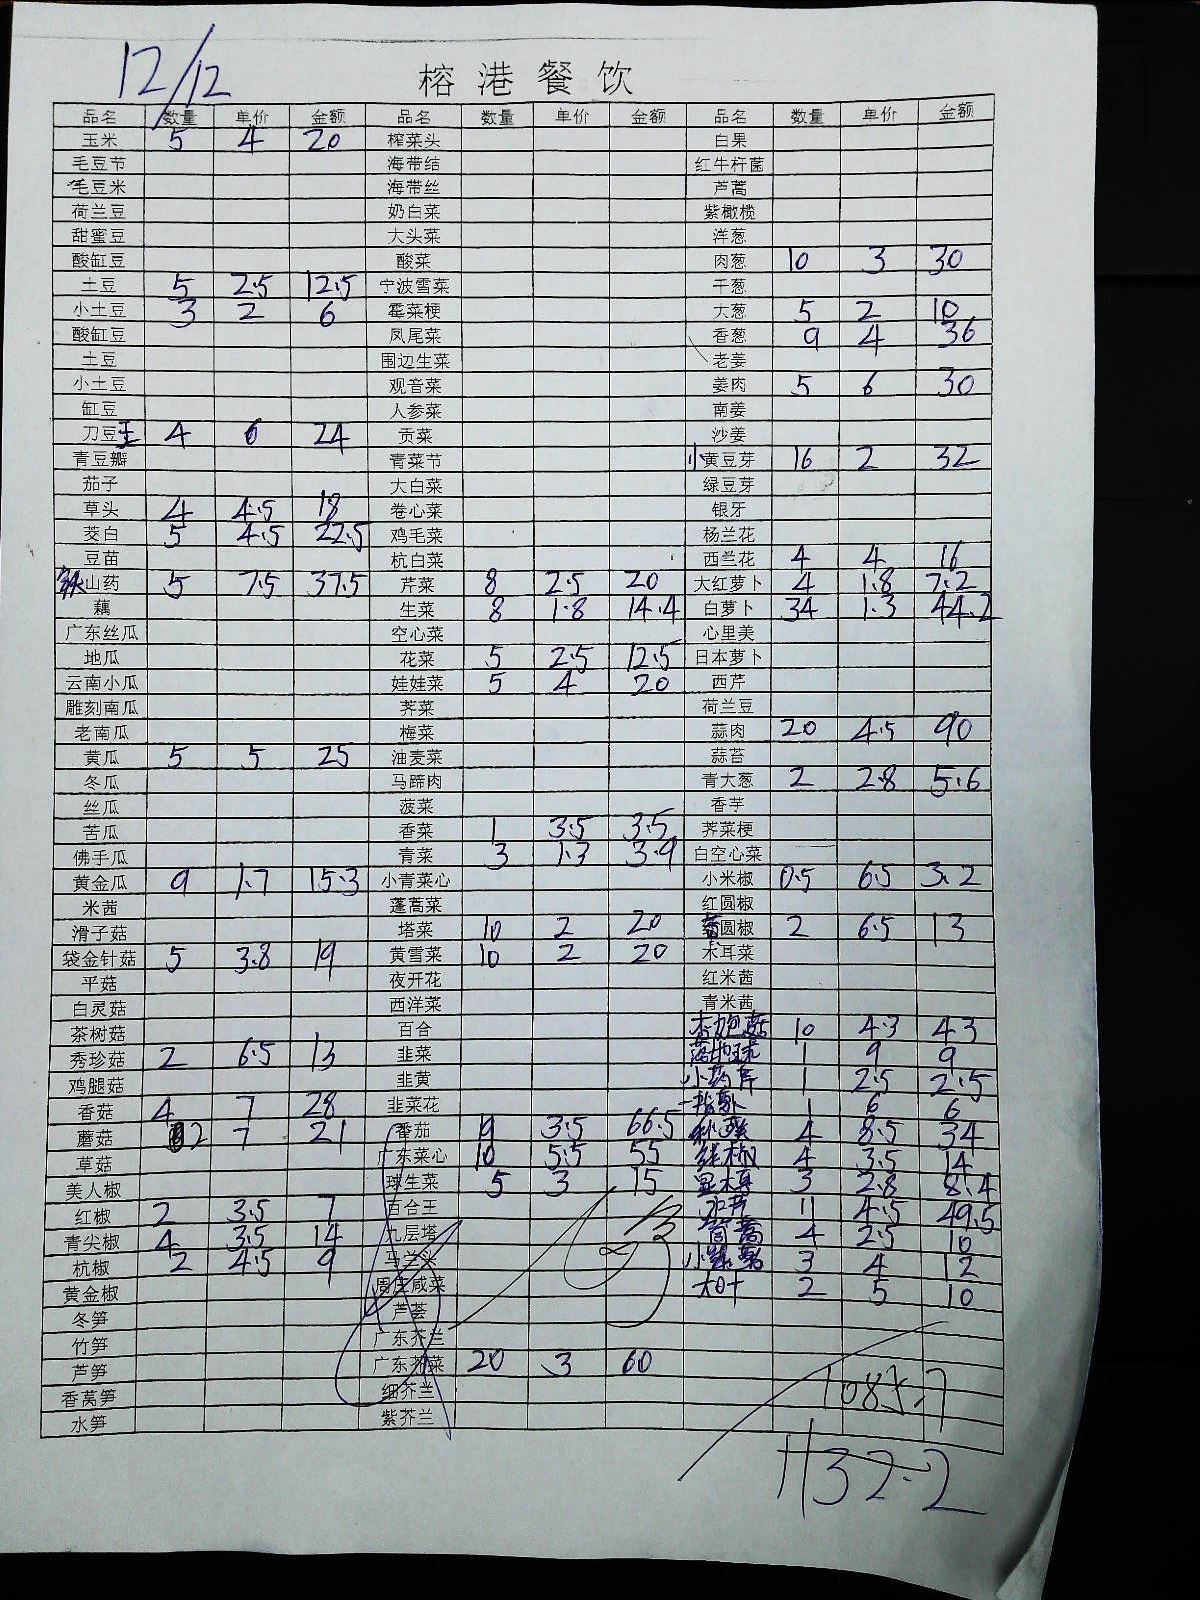 12/12
榕港餐饮
品名 数量 单价 金额 品名 数量 单价 金额 品名 数量 单价 金额
玉米 5 4 20 榨菜头 白果
毛豆节 海带结 红牛杆菌
毛豆米 海带丝 芦蒿
荷兰豆 奶白菜 紫橄榄
甜蜜豆 大头菜 洋葱
酸缸豆 酸菜 肉葱 10 3 30
土豆 5 2.5 12.5 宁波雪菜 干葱
小土豆 3 2 6 霉菜梗 大葱 5 2 10
酸缸豆 凤尾菜 香葱 9 4 36
土豆 围边生菜 老姜
小土豆 观音菜 姜肉 5 6 30
缸豆 人参菜 南姜
刀豆王 4 6 24 贡菜 沙姜
青豆瓣 青菜节 小黄豆芽 16 2 32
茄子 大白菜 绿豆芽
草头 4 4.5 18 卷心菜 银牙
茭白 5 4.5 22.5 鸡毛菜 杨兰花
豆苗 杭白菜 西兰花 4 4 16
铁山药 5 7.5 37.5 芹菜 8 2.5 20 大红萝卜 4 1.8 7.2
藕 生菜 8 1.8 14.4 白萝卜 34 1.3 44.2
广东丝瓜 空心菜 心里美
地瓜 花菜 5 2.5 12.5 日本萝卜
云南小瓜 娃娃菜 5 4 20 西芹
雕刻南瓜 荠菜 荷兰豆
老南瓜 梅菜 蒜肉 20 4.5 90
黄瓜 5 5 25 油麦菜 蒜苔
冬瓜 马蹄肉 青大葱 2 2.8 5.6
丝瓜 菠菜 香芋
苦瓜 香菜 1 3.5 3.5 荠菜梗
佛手瓜 青菜 3 1.3 3.9 白空心菜
黄金瓜 9 1.7 15.3 小青菜心 小米椒 0.5 6.5 3.2
米茜 蓬蒿菜 红圆椒
滑子菇 塔菜 10 2 20 圆椒 2 6.5 13
袋金针菇 5 3.8 19 黄雪菜 10 2 20 木耳菜
平菇 夜开花 红米茜
白灵菇 西洋菜 青米茜
茶树菇 百合 杏鲍菇 10 4.3 43
秀珍菇 2 6.5 13 韭菜 1 9 9
鸡腿菇 韭黄 小药芹 1 2.5 2.5
香菇 4 7 28 韭菜花 1 6 6
蘑菇 2 7 21 番茄 19 3.5 66.5 秋葵 4 8.5 34
草菇 广东菜心 10 5.5 55 线椒 4 3.5 14
美人椒 球生菜 5 3 15 黑木耳 3 2.8 8.4
红椒 2 3.5 7 百合王 水芹 11 4.5 49.5
青尖椒 4 3.5 14 九层塔 茼蒿 4 2.5 10
杭椒 2 4.5 9 马兰头 3 4 12
黄金椒 周庄咸菜 大叶 2 5 10
冬笋 芦荟
竹笋 广东芥兰
芦笋 广东芥菜 20 3 60
香莴笋 细芥兰
水笋 紫芥兰
1083.7
1132.2